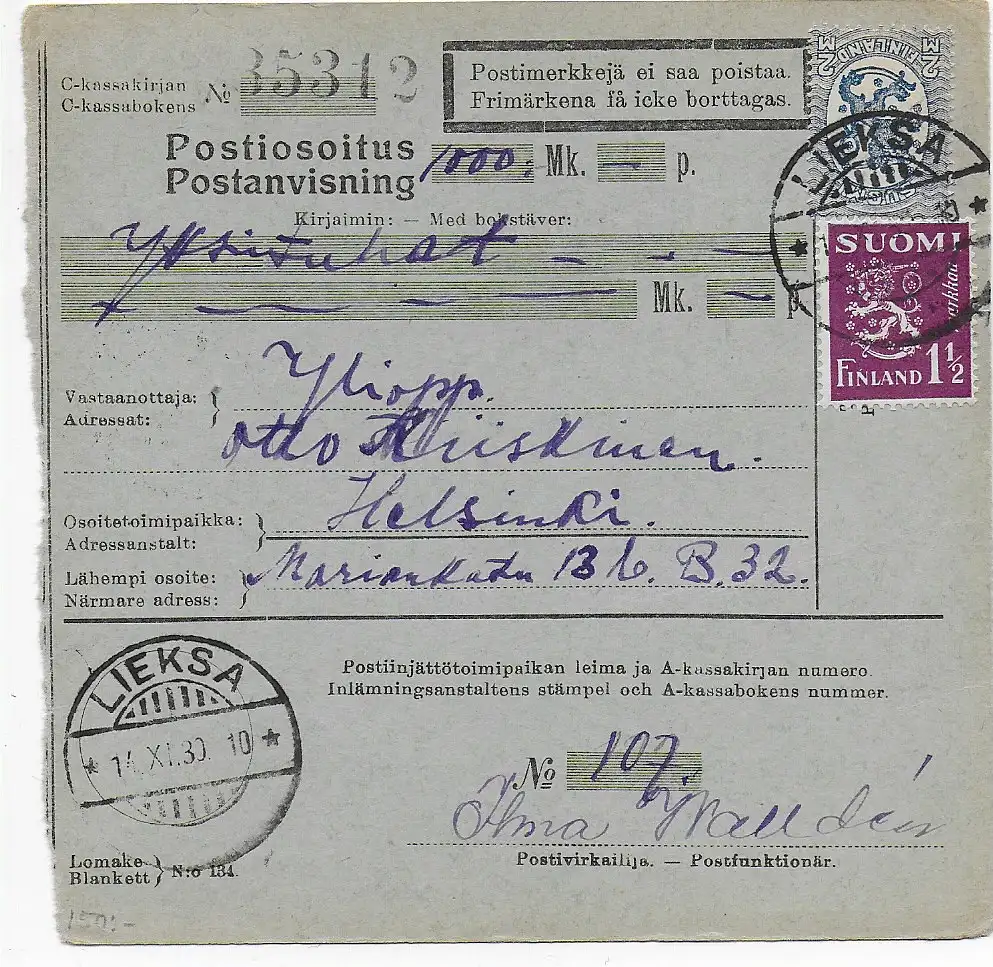 C-kassakirjan
C-kassabokens № 35312
Postimerkkejä ei saa poistaa.
Frimärkena få icke borttagas.
FINLAND
2 M
LIEKSA
SUOMI
markkaa
FINLAND 1½
Postiosoitus
Postanvisning 1000: Mk. — p.
Kirjaimin: — Med bokstäver:
Yksituhat — — —
— — — — Mk. — p
Vastaanottaja:
Adressat:
Yliopp.
Otto Kiiskinen.
Osoitetoimipaikka:
Adressanstalt:
Helsinki.
Lähempi osoite:
Närmare adress:
Mariankatu 13 b. B. 32.
LIEKSA
14.XI.30. 10
Postiinjättötoimipaikan leima ja A-kassakirjan numero.
Inlämningsanstaltens stämpel och A-kassabokens nummer.
№ 107.
Ilma Walldén
Postivirkailija. — Postfunktionär.
Lomake
Blankett N:o 134.
150:-